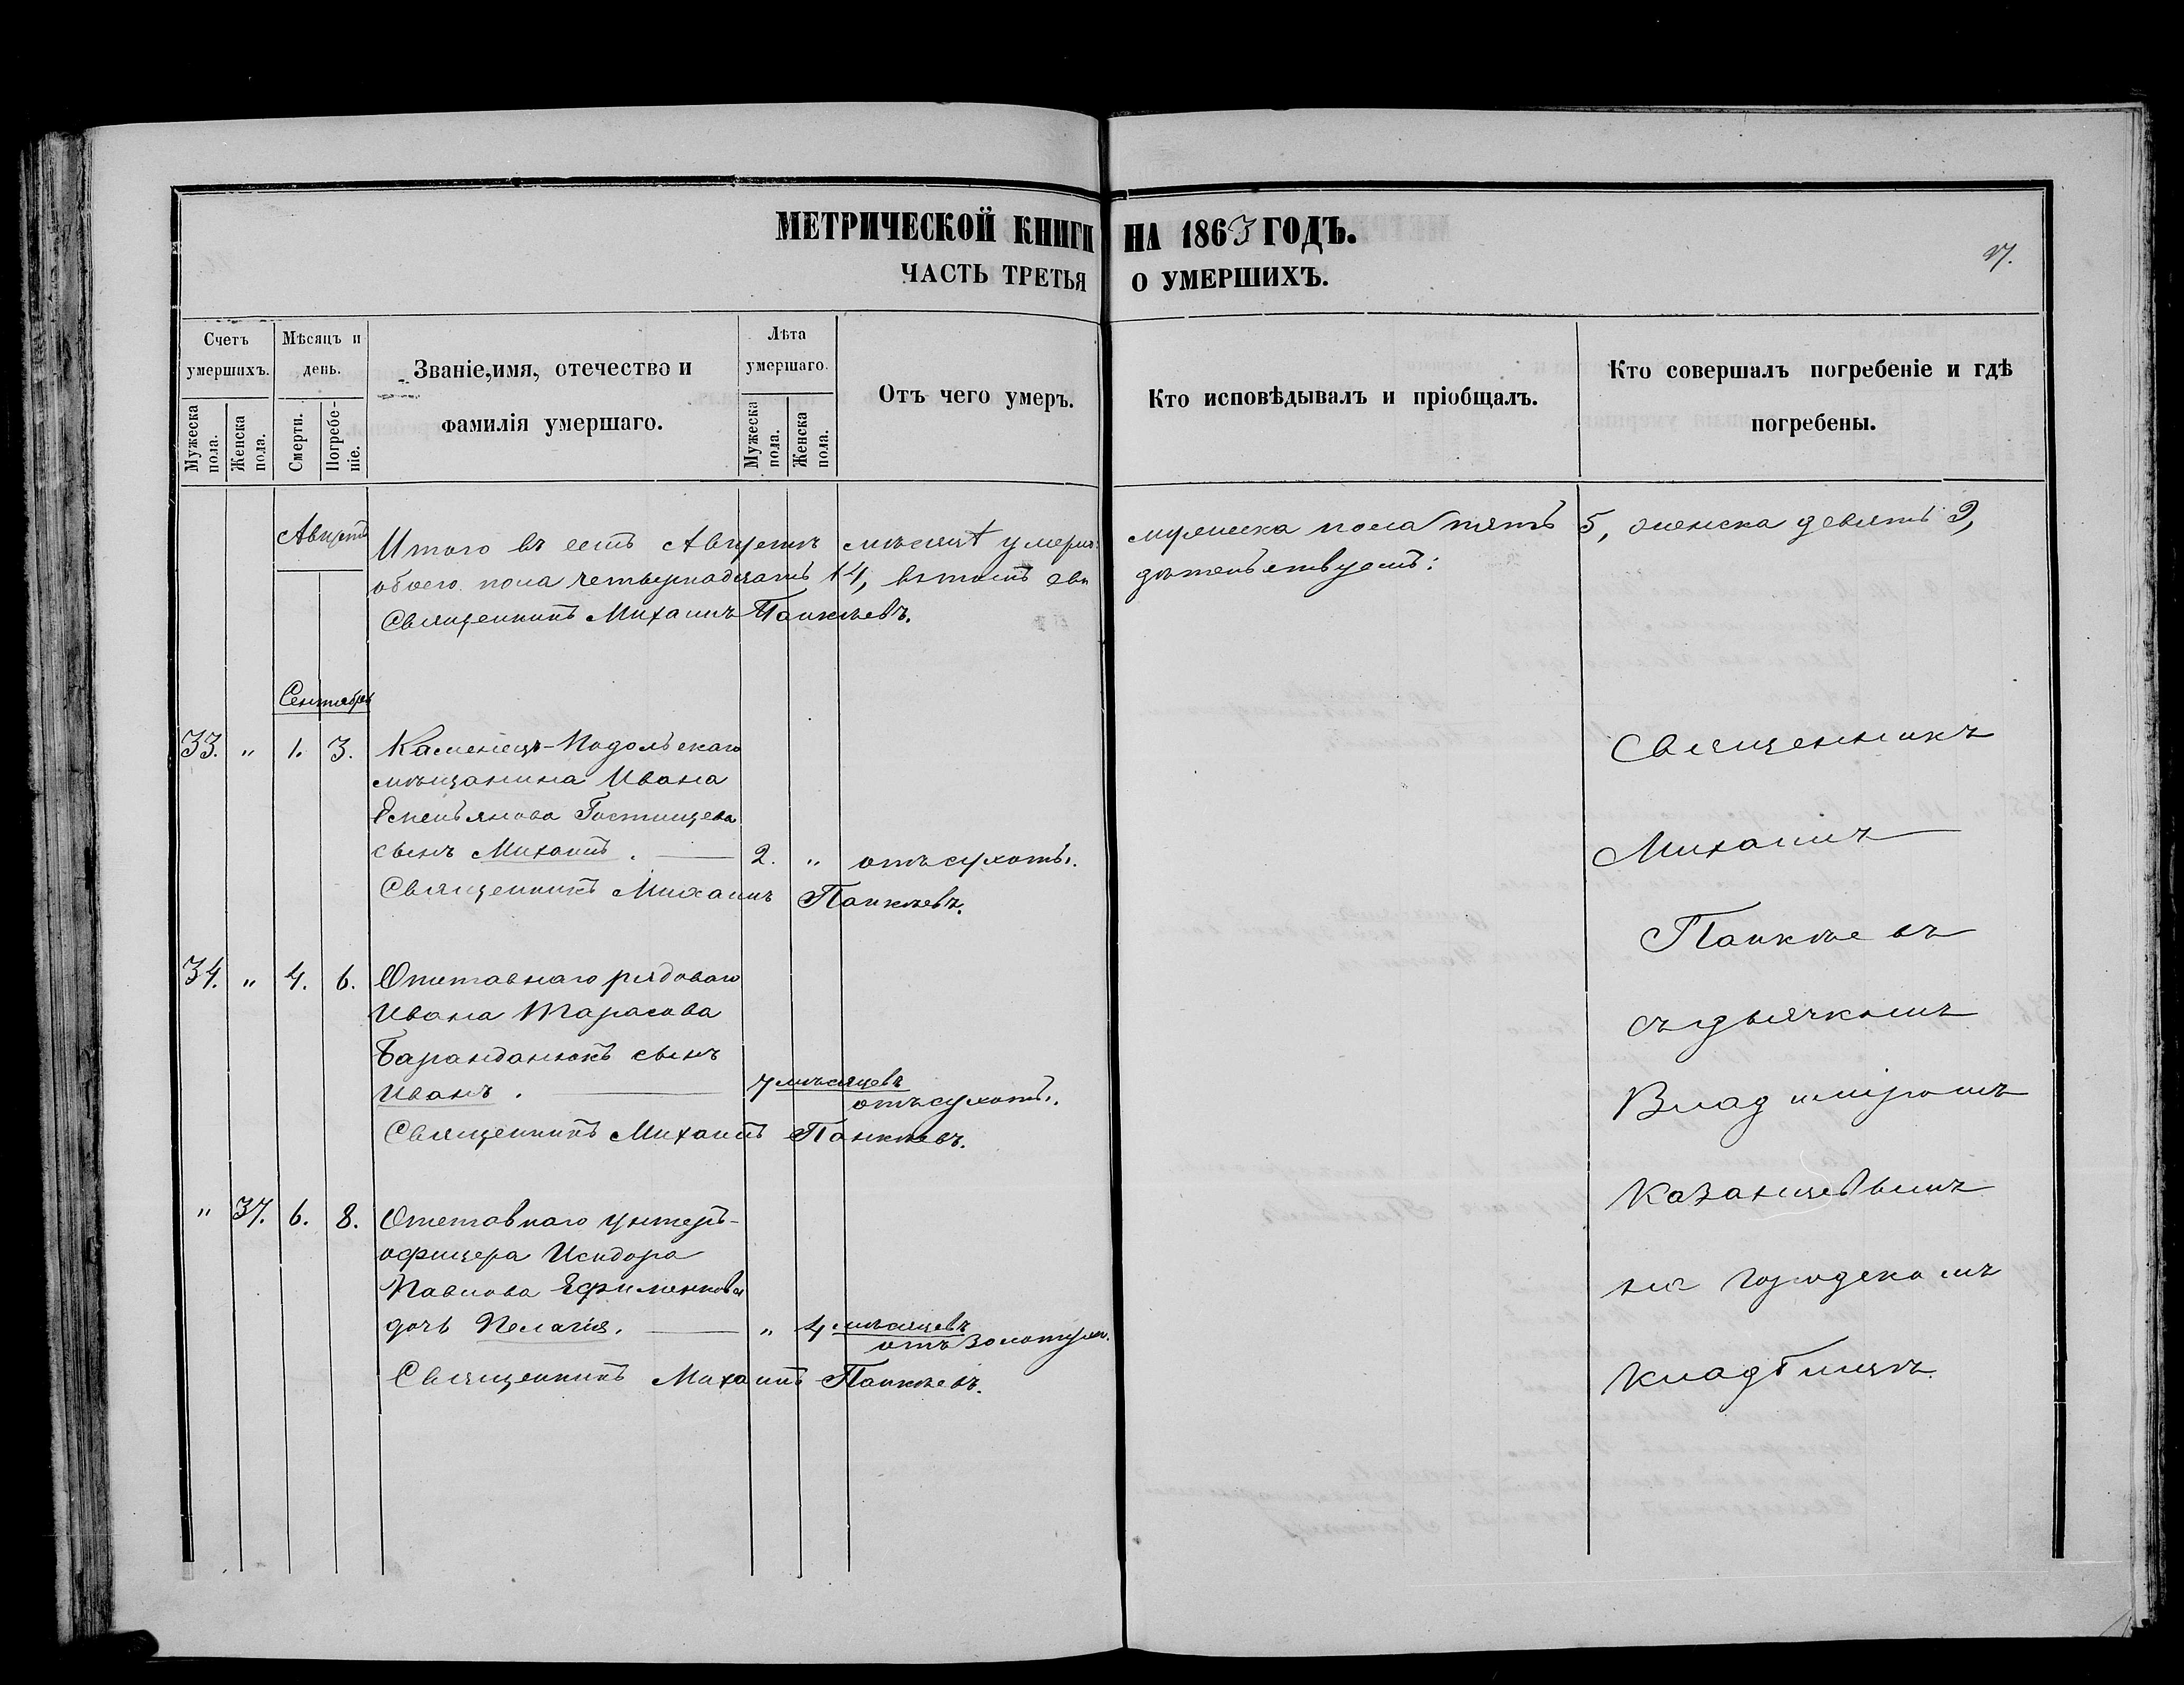 МЕТРИЧЕСКОЙ КНИГИ НА 1863 ГОДЪ.
17.
ЧАСТЬ ТРЕТЬЯ О УМЕРШИХЪ.
Счетъ умершихъ.
Мужеска пола.
Женска пола.
Мѣсяцъ и день.
Смерти.
Погребе-ніе.
Званіе, имя, отечество и
фамилія умершаго.
Лѣта умершаго.
Мужеска пола.
Женска пола.
Отъ чего умеръ.
Кто исповѣдывалъ и пріобщалъ.
Кто совершалъ погребеніе и гдѣ
погребены.
Августъ
Итого въ семъ Августѣ мѣсяцѣ умерш: мужеска пола пять 5, женска девять 9,
обоего пола четырнадцать 14, въ томъ сви дѣтельствуетъ:
Священникъ Михаилъ Панкѣевъ.
Сентябрь
33. " 1. 3. Каменецъ-Подольскаго
мѣщанина Ивана
Емельянова Гостищева
сынъ Михаилъ. 2. " отъ сухотъ.
Священникъ Михаилъ Панкѣевъ.
34. " 4. 6. Отставнаго рядоваго
Ивана Тарасова
Баранданюкъ сынъ
Иванъ. 7 мѣсяцевъ
отъ сухотъ.
Священникъ Михаилъ Панкѣевъ.
" 37. 6. 8. Отставнаго унтеръ-
офицера Исидора
Павлова Ефименкова
дочь Пелагія. " 4 мѣсяцевъ
отъ золотухи.
Священникъ Михаилъ Панкѣевъ.
Священникъ
Михаилъ
Панкѣевъ
съ дьячкомъ
Владиміромъ
Казанцевымъ
на городскомъ
кладбищѣ.